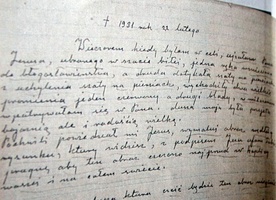 † 1931 rok, 22 lutego
Wieczorem kiedy byłam w celi, ujrzałam
Jezusa, ubranego w szacie białej, jedna ręka
do błogosławieństwa, a druga dotykała szaty na
z uchylenia szaty na piersiach, wychodziły dwa wielkie
promienie jeden czerwony, a drugi blady, w milczeniu
wpatrywałam się w Pana; dusza moja była przejęta
bojaźnią, ale i radością wielką.
powiedział mi Jezus, wymaluj obraz według
rysunku, który widzisz, z podpisem Jezu ufam
pragnę, aby ten obraz czczono najpierw w kaplicy
waszej i na całym świecie.
czcić będzie ten obraz